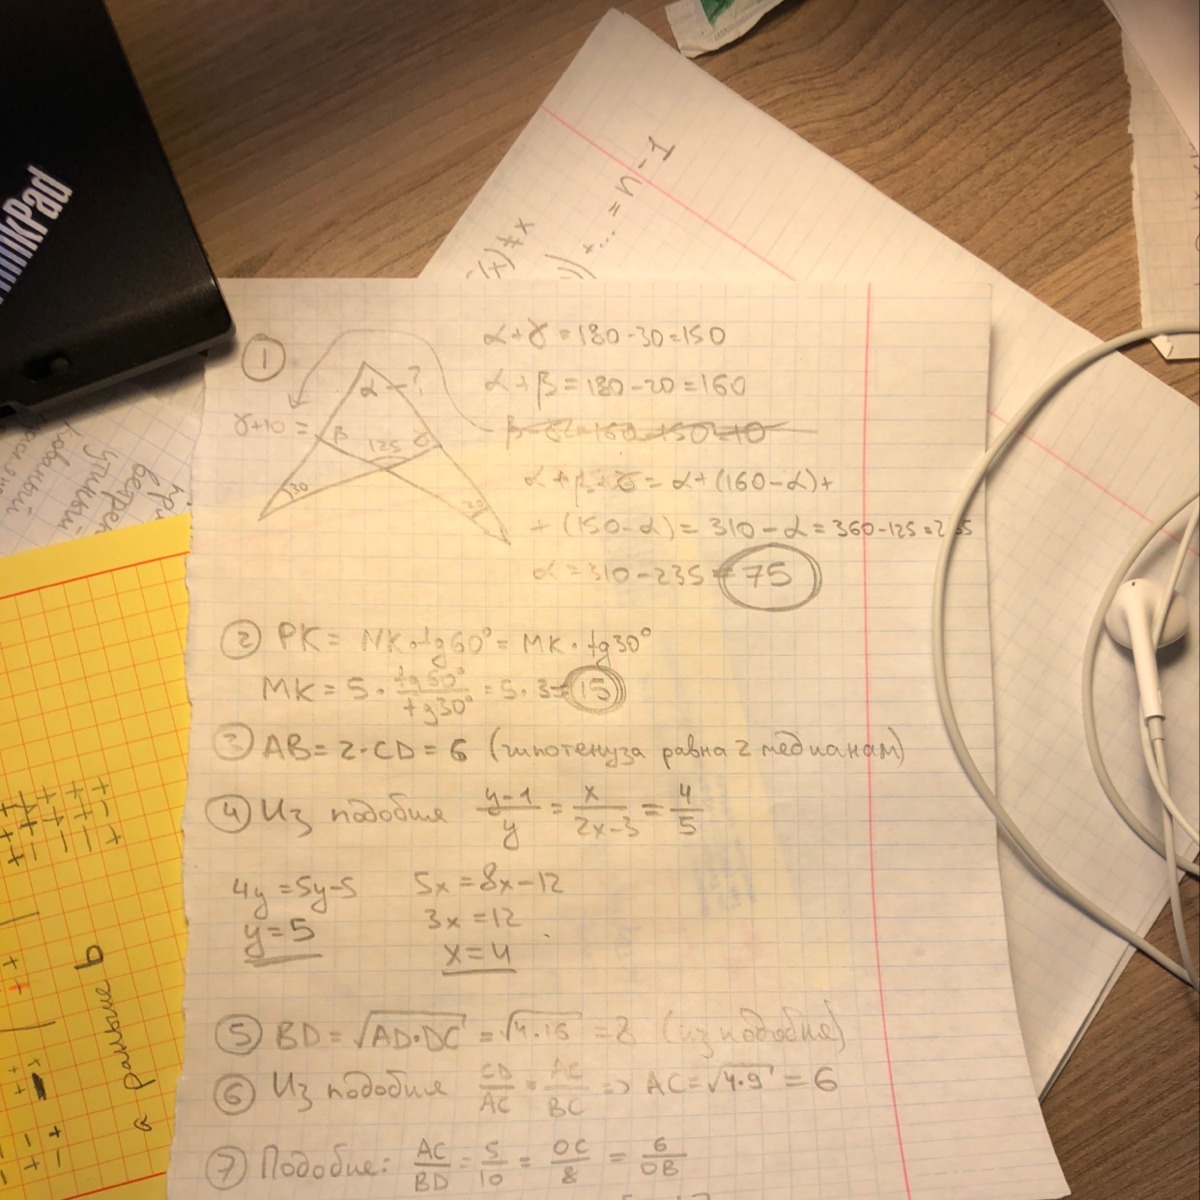 ThinkPad
(x) + x
)) + ... = n - 1
① α - ?
γ+10 =
β
125
γ
30
20
α + γ = 180 - 30 = 150
α + β = 180 - 20 = 160
α + β + γ = α + (160 - α) +
+ (150 - α) = 310 - α = 360 - 125 = 235
α = 310 - 235 = 75
② PK = NK · tg60° = MK · tg30°
MK = 5 · tg60° / tg30° = 5 · 3 = 15
③ AB = 2 · CD = 6 (гипотенуза равна 2 медианам)
④ Из подобия (y-1)/y = x/(2x-3) = 4/5
4y = 5y-5 5x = 8x-12
y = 5 3x = 12
x = 4
⑤ BD = √(AD·DC) = √(4·16) = 8 (из подобия)
⑥ Из подобия CD/AC = AC/BC => AC = √(4·9) = 6
⑦ Подобие: AC/BD = 5/10 = OC/8 = 6/OB
a раньше b